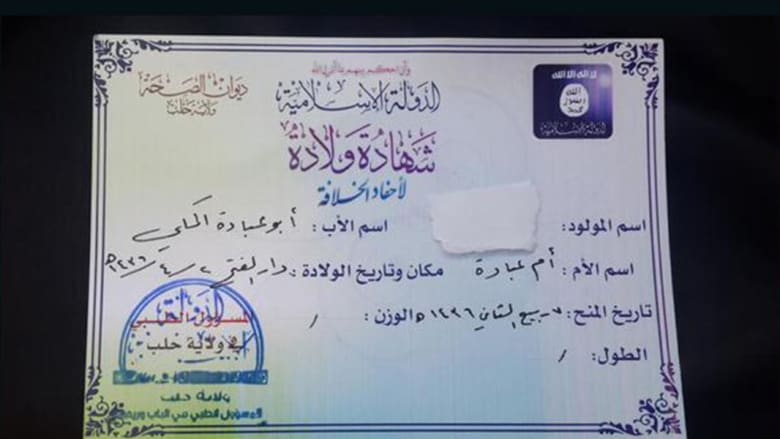 وأن احكم بينهم بما أنزل الله
ديوان الصحة
ولاية حلب
الدولة الإسلامية
لا اله الا الله
الله
رسول
محمد
الدولة الإسلامية
شهادة ولادة
لأحفاد الخلافة
اسم المولود: اسم الأب: أبو عبادة
اسم الأم: أم عبادة مكان وتاريخ الولادة: دار ٢/٤/١٤٣٦هـ
تاريخ المنح: ٧ ربيع الثاني ١٤٣٦هـ الوزن: /
الطول: /
المسؤول الطبي
في ولاية حلب
ولاية حلب
المسؤول الطبي في الباب